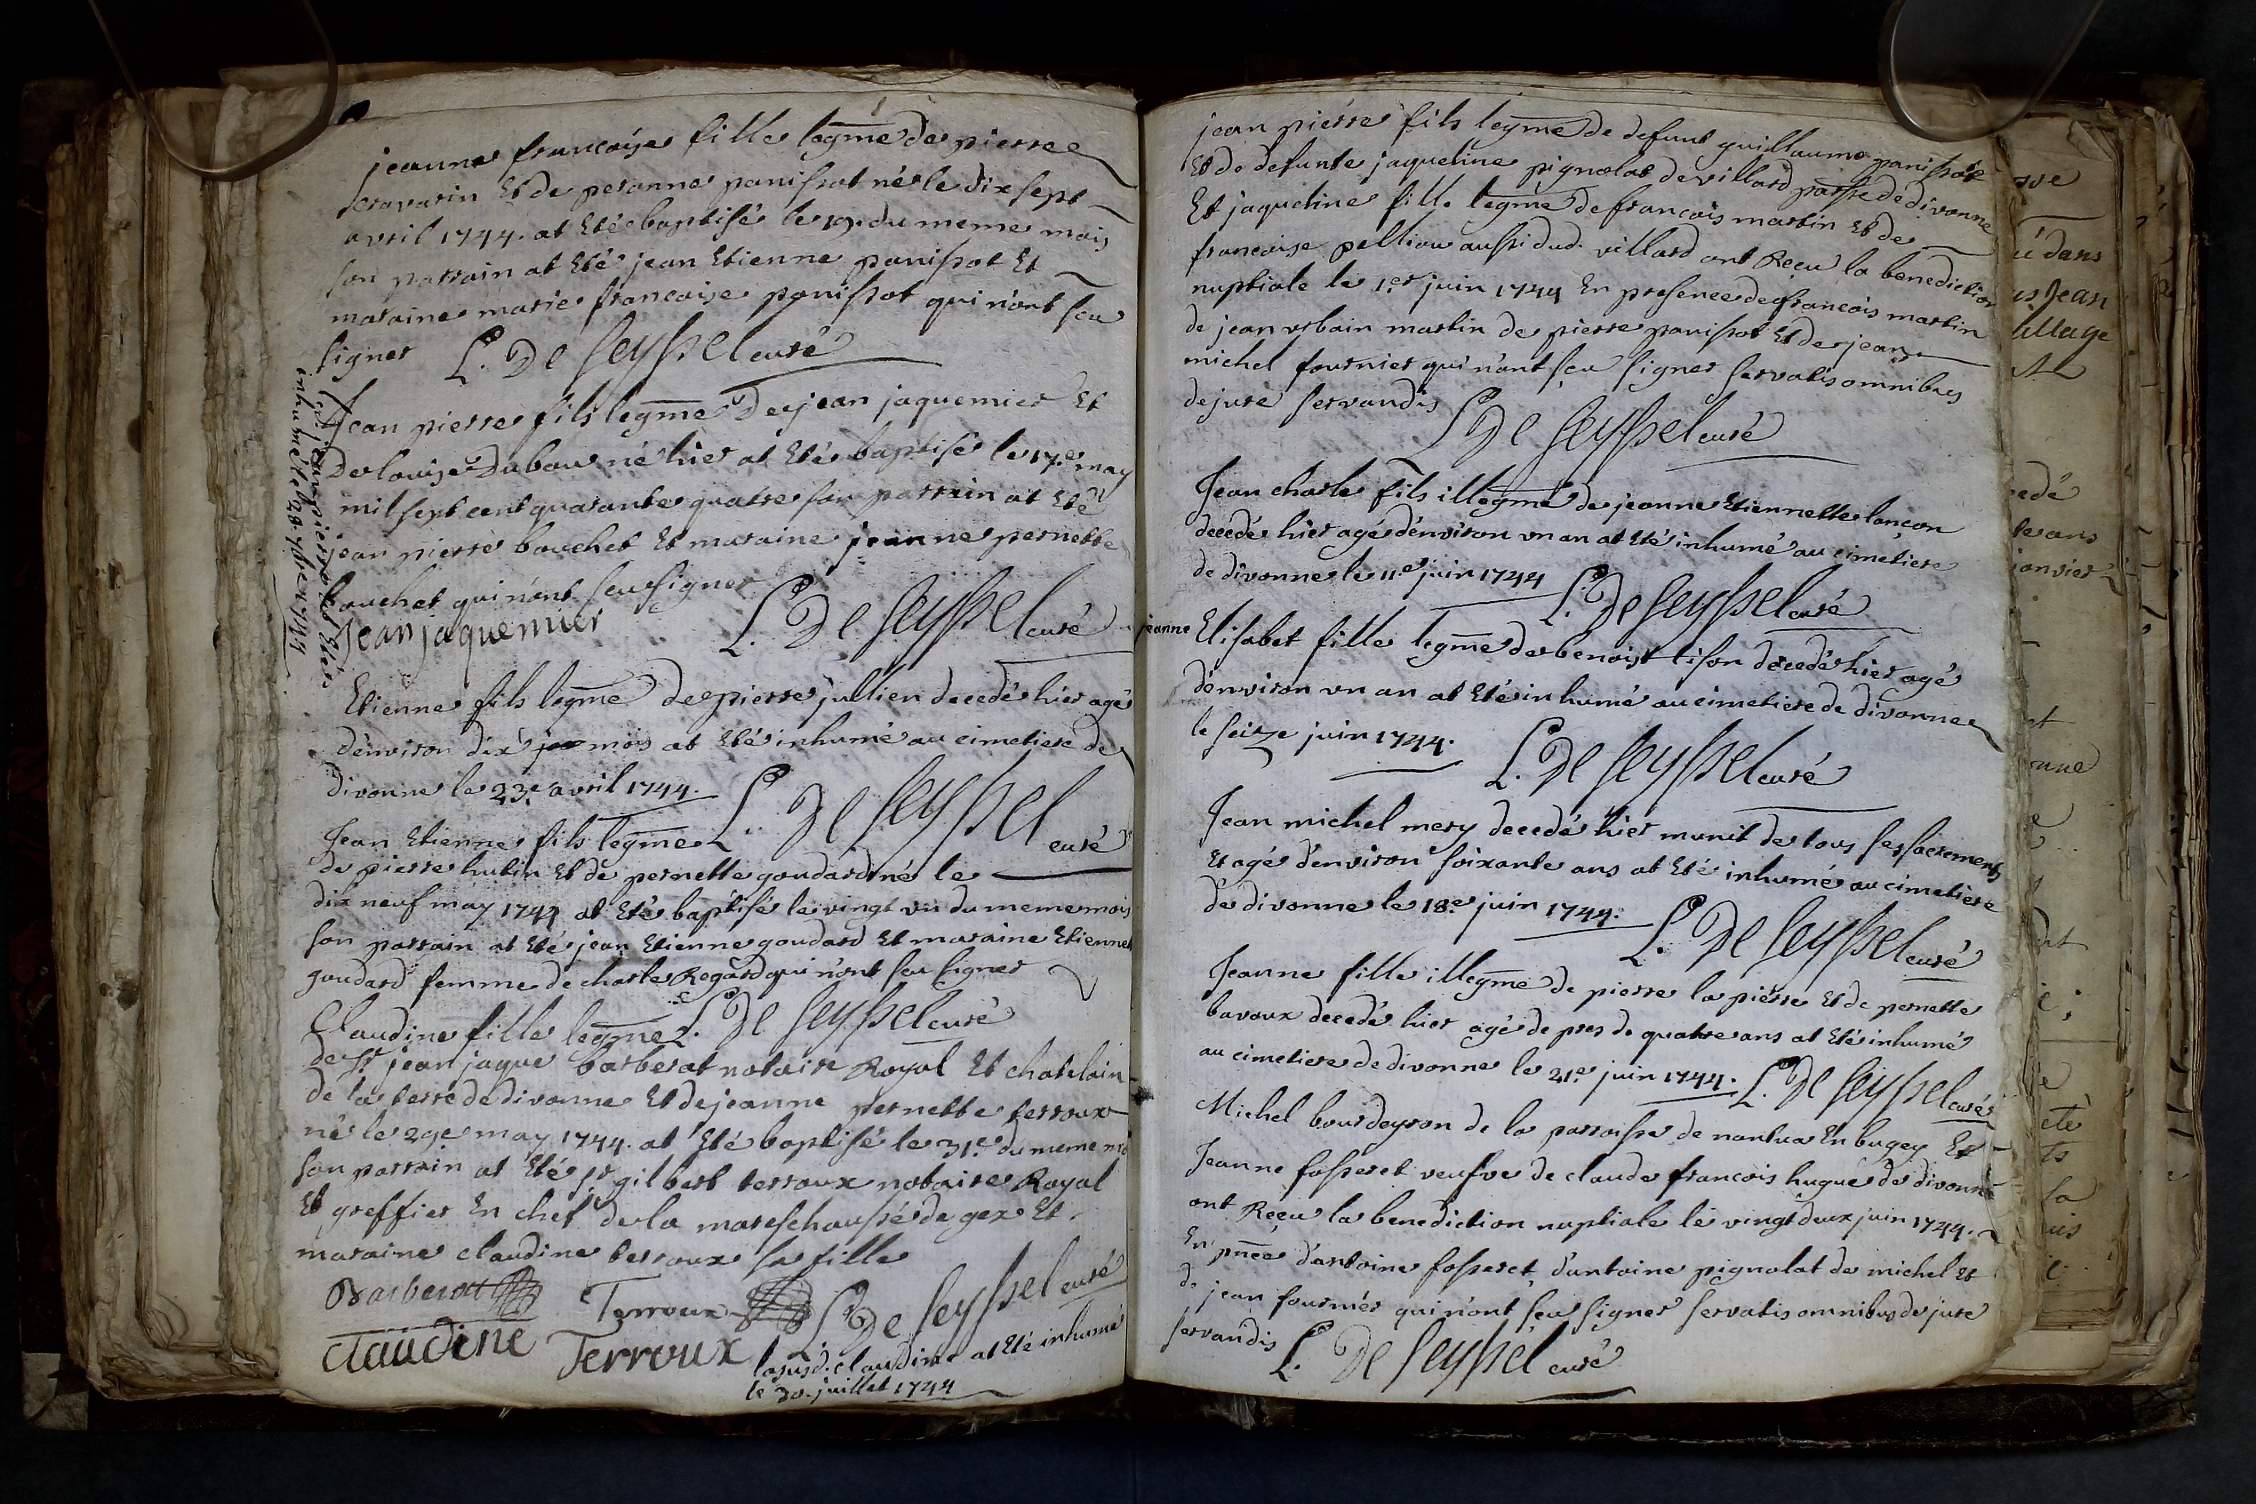 jeanne francoise fille legme de pierre
cravarin Et de peranne panissot né le dix sept
avril 1744. at Eté baptisé le 19. du meme mois
son parrain at Eté jean Etienne panissot Et
maraine marie francoise panissot qui n'ont sçu
signer L. De Seyssel curé
Jean pierre fils legme de jean jaquemier Et
de louise Dubou né hier at Eté baptisé le 17e may
mil sept cent quarante quatre son parrain at Eté
jean pierre bouchet Et maraine jeanne pernette
bouchet qui n'ont sçu signer
Jean jaquemier L. De Seyssel curé
jean pierre at Eté
inhumé le 28. 7bre 1744
Etienne fils legme de pierre jullien decedé hier agé
d'environ dix mois at Eté inhumé au cimetiere de
divonne le 23e avril 1744. L. De Seyssel curé
Jean Etienne fils legme
de pierre hutin Et de pernette goudard né le
dix neuf may 1744 at Eté baptisé le vingt un du meme mois
son parrain at Eté jean Etienne goudard Et maraine Etienne
goudard femme de charle Regard qui n'ont sçu signer
L. De Seyssel curé
Claudine fille legme
de Sr. jean jaque barberat notaire Royal Et chatelain
de la terre de divonne Et de jeanne pernette terroux
né le 29e may 1744. at Eté baptisé le 31e. du meme
son parrain at Eté Sr gilbert terroux notaire Royal
Et greffier En chef de la mareschaussé de gex Et
maraine claudine terroux sa fille
Barberat Terroux L. De Seyssel curé
claudine Terroux
la susd. claudine at Eté inhumé
le 20. juillet 1744
jean pierre fils legme de defunt guillaume panissot
Et de defunte jaqueline pignolat de villard parsse de divonne
Et jaqueline fille legme de francois martin Et de
francoise pelliou aussi dud. villard ont Reçu la benediction
nuptiale le 1er juin 1744 En presence de francois martin
de jean urbain martin de pierre panissot Et de jean
michel fournier qui n'ont sçu signer servatis omnibus
de jure servandis
L. De Seyssel curé
Jean charle fils illegme de jeanne Etiennette lançon
decedé hier agé d'environ un an at Eté inhumé au cimetiere
de divonne le 11e juin 1744 L. De Seyssel curé
jeanne Elisabet fille legme de benoist tison decedé hier agé
d'environ un an at Eté inhumé au cimetiere de divonne
le seize juin 1744.
L. De Seyssel curé
Jean michel mery decedé hier munit de tous ses sacrements
Et agé d'environ soixante ans at Eté inhumé au cimetiere
de divonne le 18e juin 1744.
L. De Seyssel curé
Jeanne fille illegme de pierre la pierre Et de pernette
bavoux decedé hier agé de pres de quatre ans at Eté inhumé
au cimetiere de divonne le 21e juin 1744. L. De Seyssel curé
Michel bourdeyron de la parroisse de nantua En bugey Et
Jeanne fosseret veufve de claude francois hugue de divonne
ont Reçu la benediction nuptiale le vingt deux juin 1744.
En pnce d'antoine fosseret d'antoine pignolat de michel Et
de jean fournier qui n'ont sçu signer servatis omnibus de jure
servandis L. De Seyssel curé